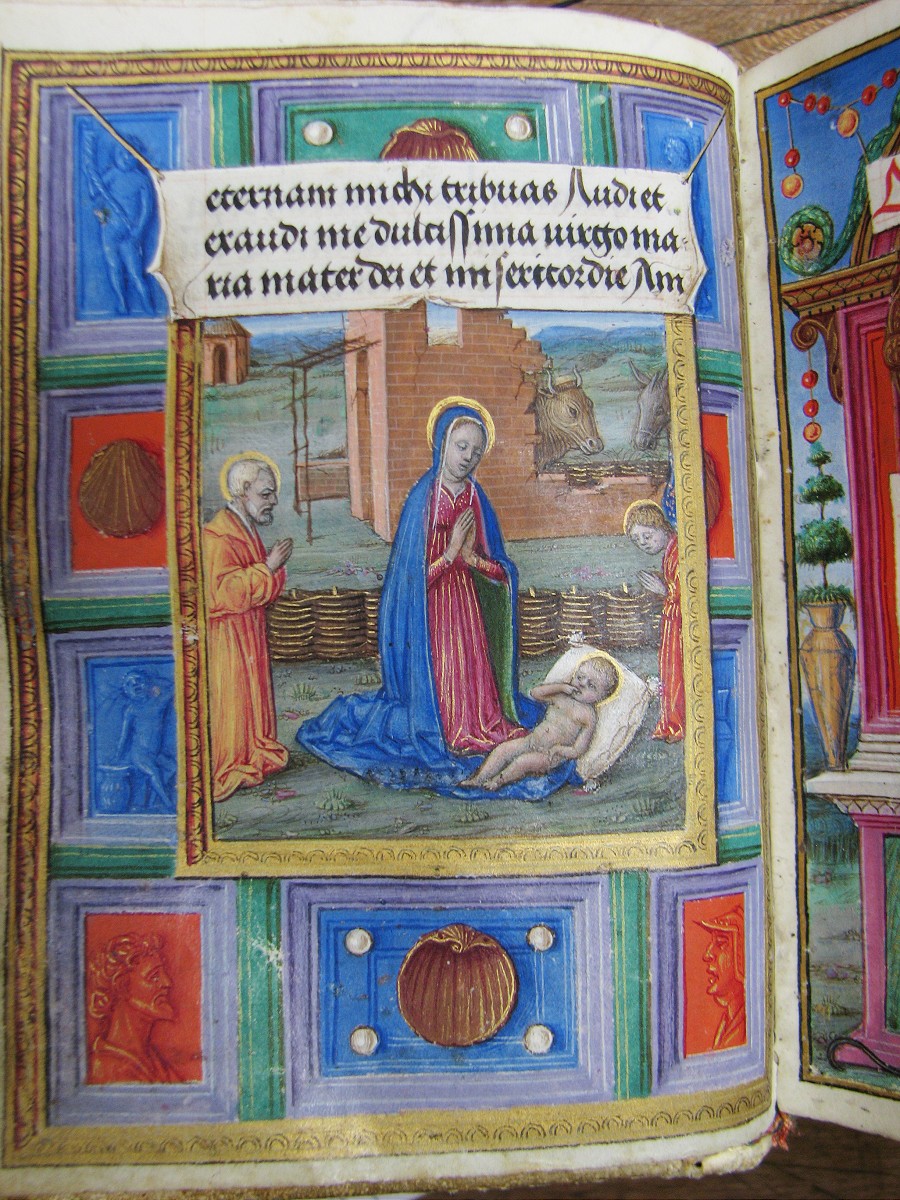 eternam michi tribuas Audi et
exaudi me dulcissima uirgo ma-
ria mater dei et misericordie Am